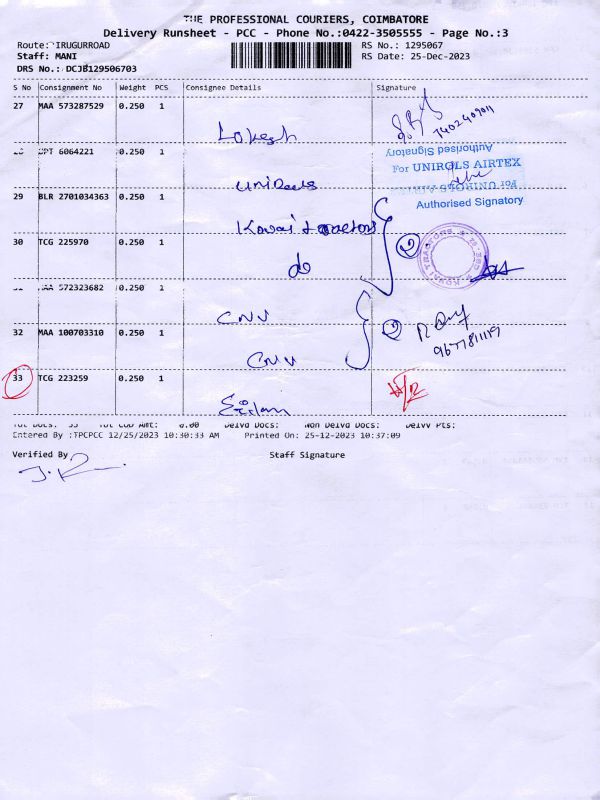 THE PROFESSIONAL COURIERS, COIMBATORE
Delivery Runsheet - PCC - Phone No.:0422-3505555 - Page No.:3
Route: IRUGURROAD RS No.: 1295067
Staff: MANI RS Date: 25-Dec-2023
DRS No.: DCJB129506703
S No Consignment No Weight PCS Consignee Details Signature
27 MAA 573287529 0.250 1
Lokesh 7402409011
6064221 0.250 1
Authorised Signatory
For UNIROLS AIRTEX
For UNIROLS AIRTEX
Authorised Signatory
29 BLR 2701034363 0.250 1
Kovai tractors
30 TCG 225970 0.250 1
do
KOVAI TRACTORS
572323682 0.250 1
CNV
32 MAA 100703310 0.250 1
CNV
33 TCG 223259 0.250 1
Tot Docs: 33 Tot COD Amt: 0.00 Delvd Docs: Non Delvd Docs: Delvy Pts:
Entered By :TPCPCC 12/25/2023 10:30:33 AM Printed On: 25-12-2023 10:37:09
Verified By Staff Signature